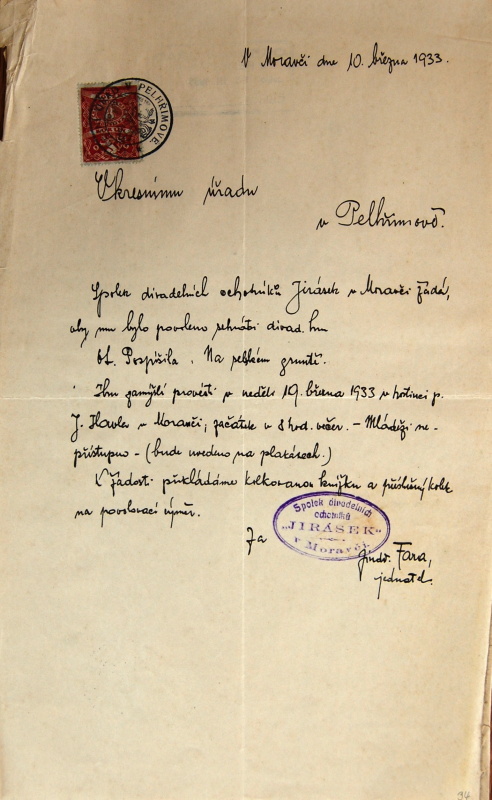 V Moravči dne 10. března 1933.
PELHŘIMOVĚ
Okresnímu úřadu
v Pelhřimově.
Spolek divadelních ochotníků Jirásek v Moravči žádá,
aby mu bylo povoleno sehráti divad. hru
Ot. Pospíšila. Na selském gruntě.
Hru zamýšlí provésti v neděli 19. března 1933 v hostinci p.
J. v Moravči, začátek v 8 hod. večer. - Mládeži ne-
přístupno - (bude uvedeno na plakátech.)
K žádosti přikládáme kolkovanou knížku a příslušný kolek
na povolovací výměr.
Za
Spolek divadelních
ochotníků
„JIRÁSEK"
v Moravči.
Jindř. Fara,
jednatel.
94